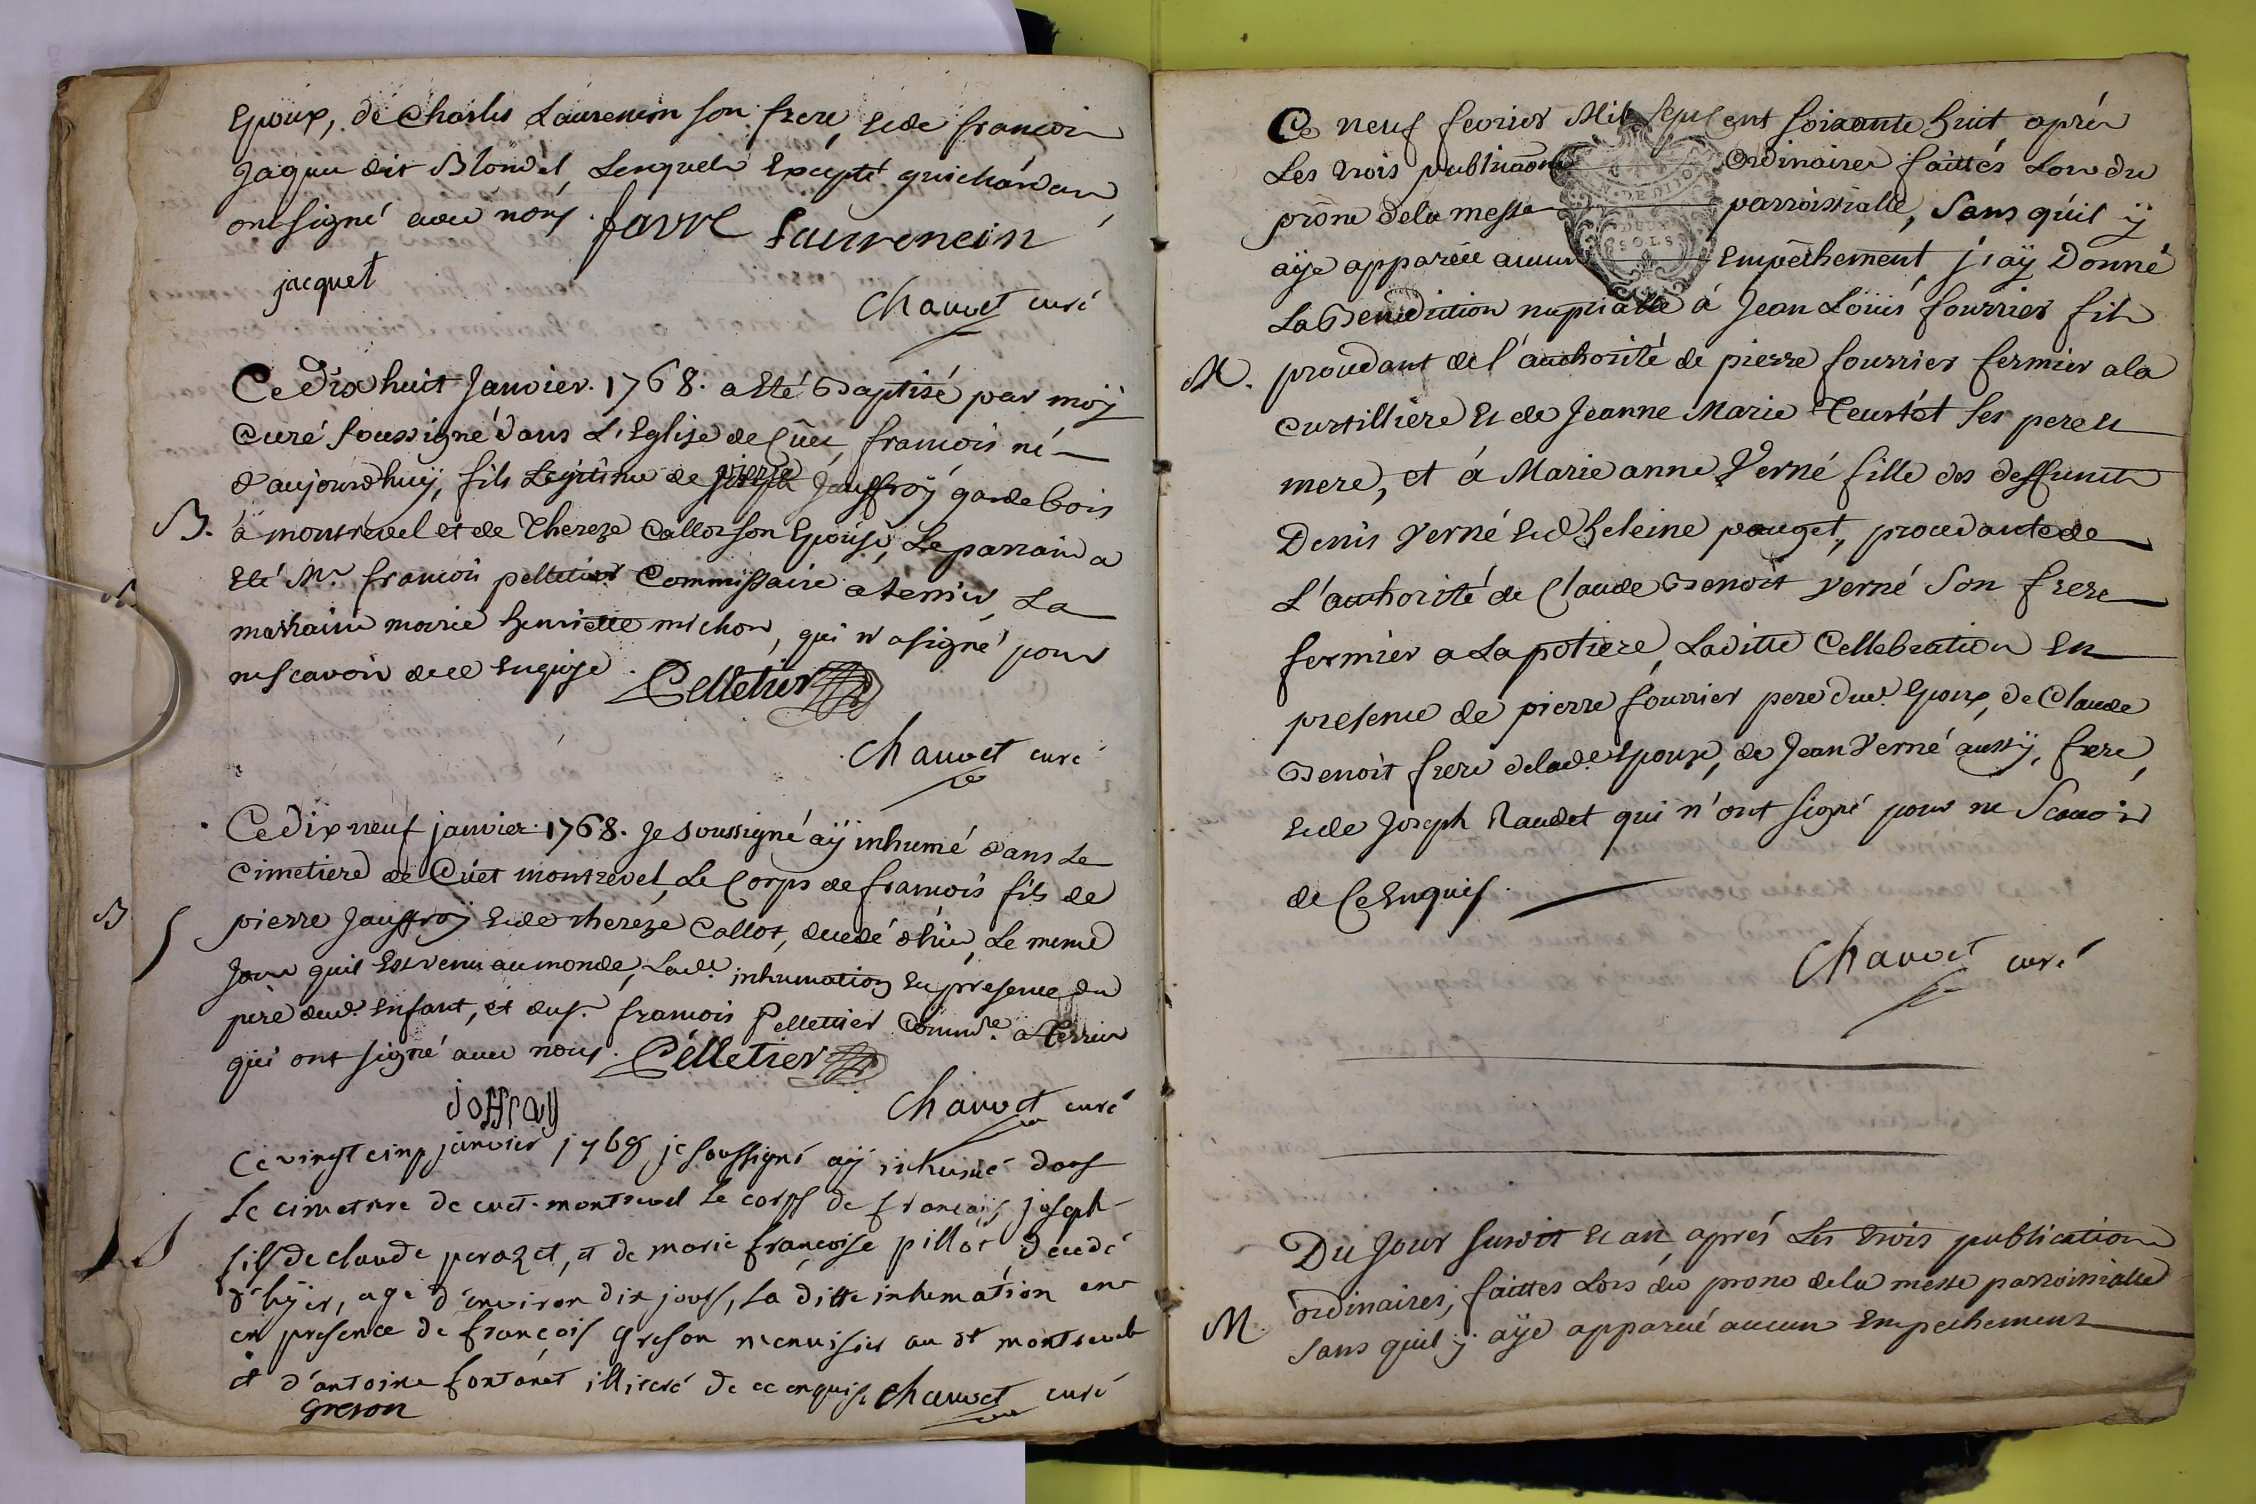 Epoux, de Charles Laurencin son frere, et de francois
Jaque dit Blondel Lesquels Excepté guichardan
ont signé avec nous. favre Laurencin
jacquet
Chauvet curé
Ce Dix huit Janvier. 1768. a Eté Baptisé par moÿ
Curé soussigné dans L'Eglise de Cüet, francois né
d'aujourdhuÿ, fils Legitime de pierre Jauffroÿ garde bois
B. à montrevel et de Thereze Callot son Epouse, Le parrain a
Eté Mr. francois pelletier Commissaire a terrier, La
marraine marie henriette michon, qui n'a signé pour
ne scavoir de ce enquise. Pelletier
Chauvet curé
Ce dix neuf janvier. 1768. Je soussigné aÿ inhumé dans Le
Cimetiere de Cüet montrevel, Le Corps de francois fils de
B pierre Jauffroj et de thereze Callot, decedé d'hïer, Le meme
Jour quil Est venu au monde, Lade. inhumation En presence du
père dud. Enfant, et du sr. francois Pelletier Commre. a Terrier
qui ont signé avec nous. Pelletier
joffray
Chauvet curé
Ce vingt cinq janvier 1768 je soussigné aÿ inhumé dans
Le cimetiere de cuet-montrevel Le corps de francois, joseph
fils de claude perozet, et de marie françoise pillot, decedé
d'hÿer, agé d'environ dix jours, La ditte inhumation
en presence de françois greson menuisier au dt montrevel
et d'antoine fontanet illiteré de ce enquis Chauvet curé
greson
Ce neuf fevrier Mil Sept Cent soixante huit aprés
Les trois publications Ordinaires faittés Lors du
prône de la messe parroissialle, Sans qu'il ÿ
aÿe apparüe aucun Empêchement j'aÿ Donné
La Benediction nuptialle á Jean Loüis fourrier fils
M. procedant de l'authorité de pierre fourrier fermier a la
Curtilliere et de Jeanne Marie Teurtet ses pere et
mere, et á Marie anne Verné fille des deffunts
Denis Verné et d'heleine pauget, procedante de
L'authorité de Claude Benoit Verné Son frere
fermier a La potiere, Laditte Cellebration En
presence de pierre fourrier pere dud. Epoux, de Claude
Benoit frere de lade. Epouse, de Jean Verné aussÿ, frere,
et de Joseph Raudet qui n'ont signé pour ne Scavoir
de Ce Enquis.
Chauvet curé
Du Jour susdit et an, aprés Les trois publications
M ordinaires, faittes Lors du prone de la messe parroissialle
sans quil ÿ aÿe apparüe aucun Empechement